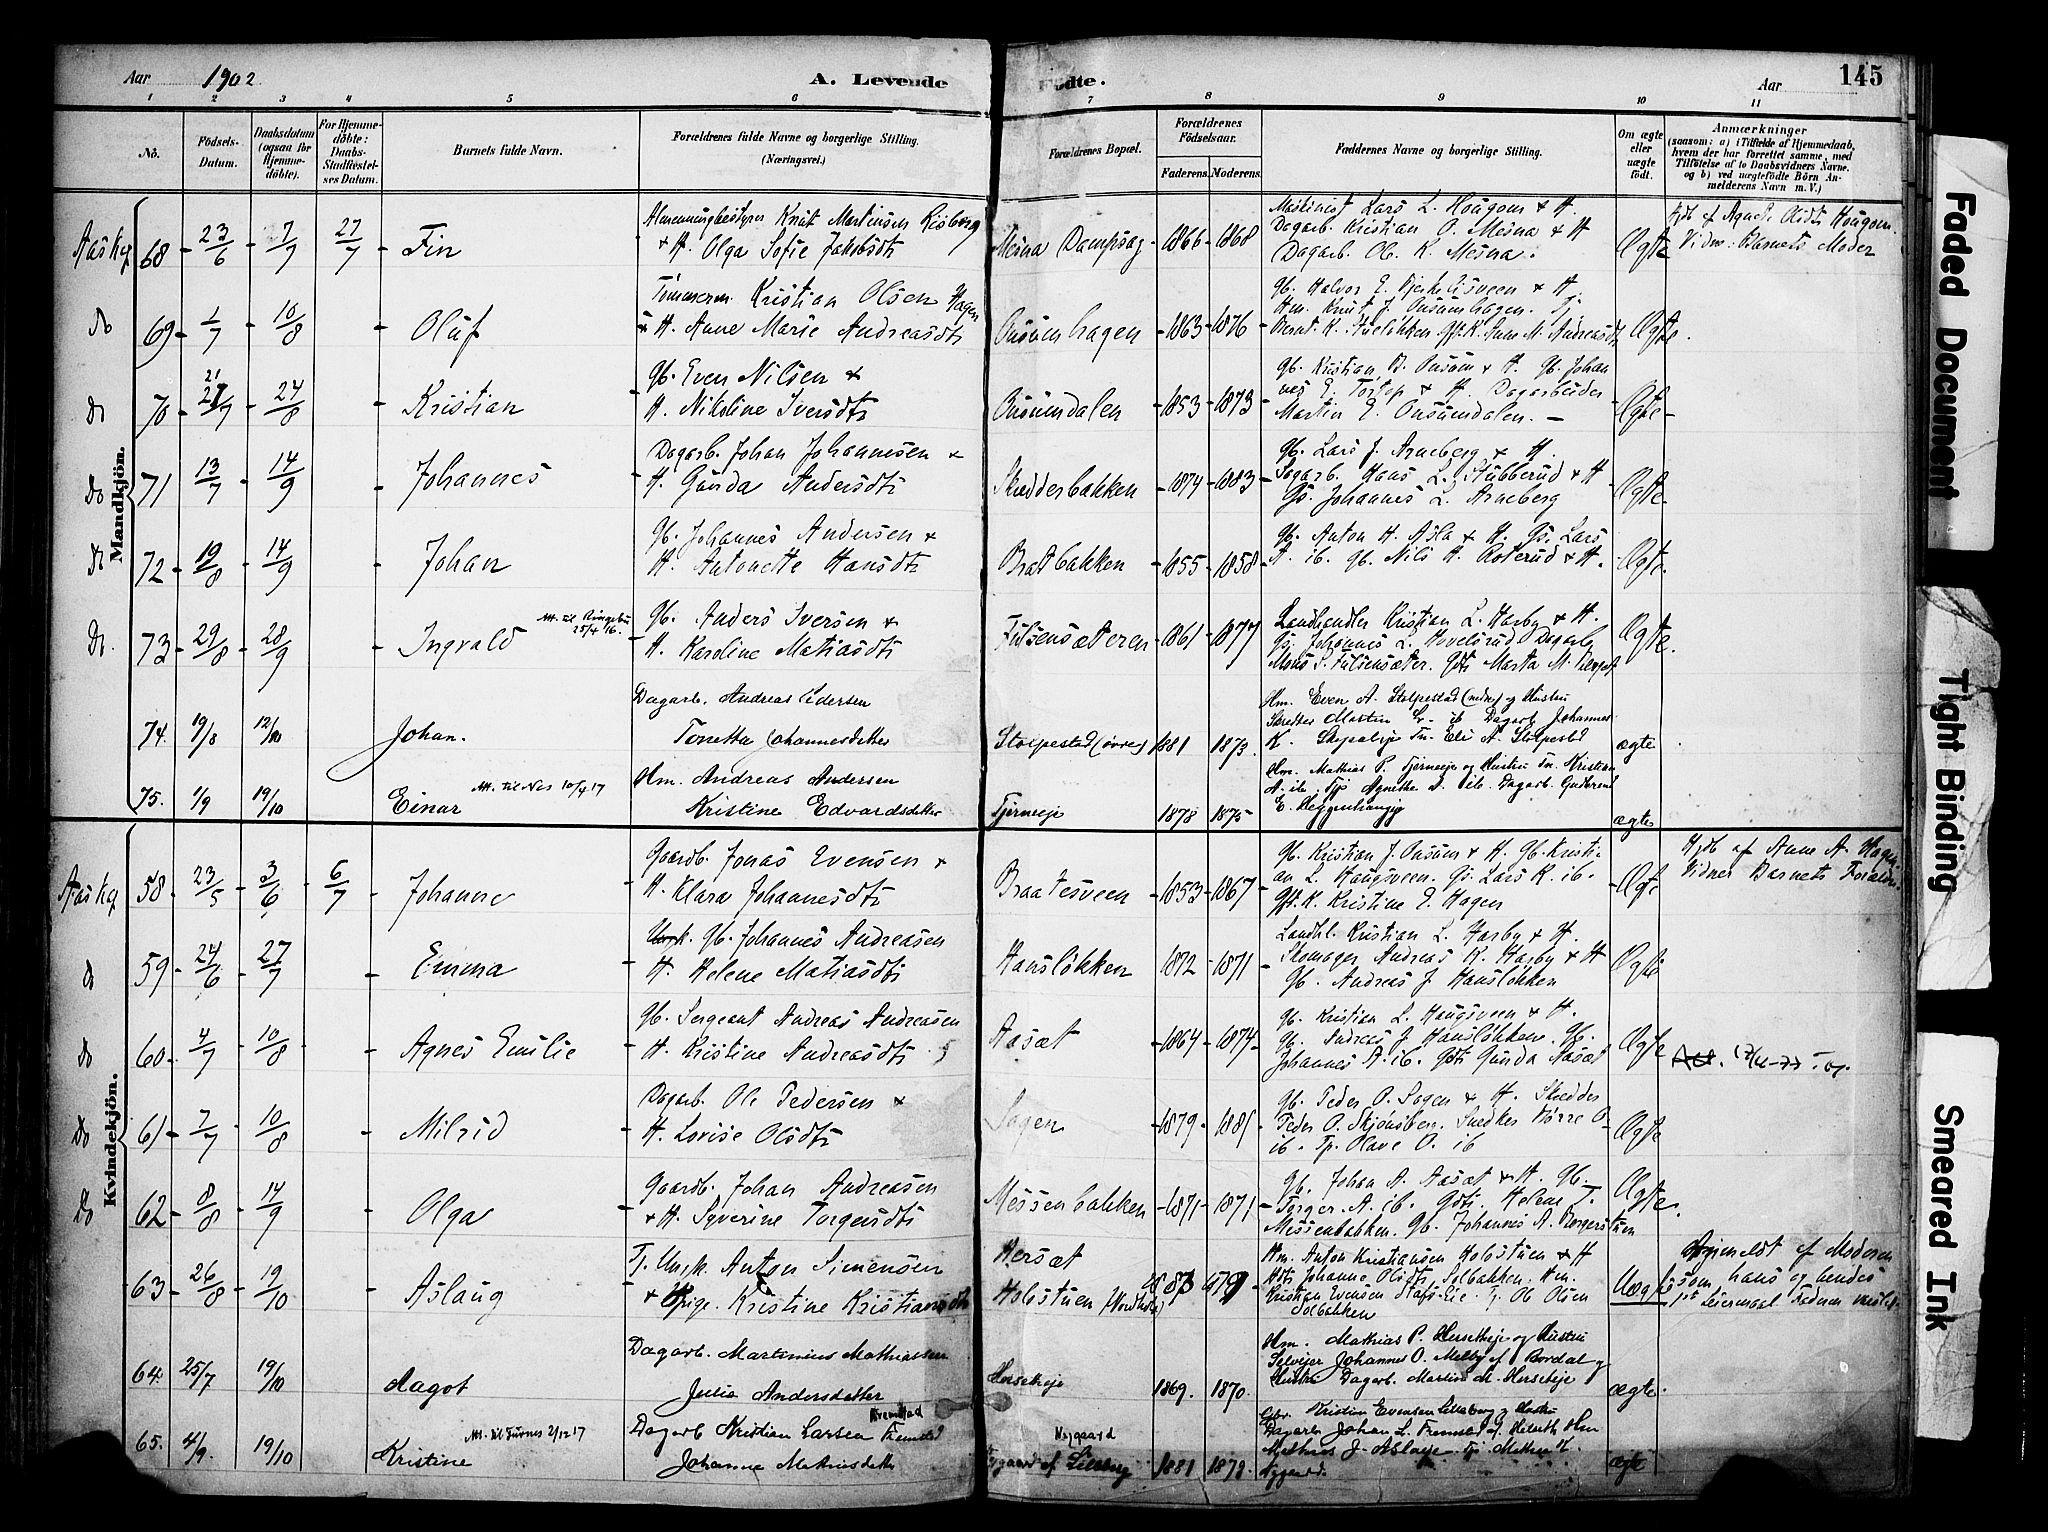 Aar 1902
A. Levende Födte.
Aar
145
1 2 3 4 5 6 7 8 9 10 11
No.
Födsels-Datum.
Daabsdatum (ogsaa for Hjemme-döbte).
For Hjemme-döbte: Daabs-Stadfestel-ses Datum.
Barnets fulde Navn.
Forældrenes fulde Navne og borgerlige Stilling.
(Næringsvei.)
Forældrenes Bopæl.
Forældrenes Födselsaar.
Faderens. Moderens.
Faddernes Navne og borgerlige Stilling.
Om ægte eller uægte födt.
Anmærkninger
(saasom: a) i Tilfælde af Hjemmedaab,
hvem der har forrettet samme, med
Tilföielse af to Daabsvidners Navne.
og b) ved uægtefödte Börn An-
melderens Navn m. V.)
Mandkjön.
Aaskg 68 - 23/6 - 7/7 27/7 - Fin
Knut Martinsen Risberg
+ H. Olga Sofie Jakobsdt
Mesna Dampsag - 1866 - 1868
Lars L. Hougom + H.
Dagarb. Kristian O. Mesna + H
Dagarb. Ol. K. Mesna.
Ægte
Hjdb af Agnete Olsdt Hougom.
Vidne: Barnets Moder
Do 69 - 1/7 - 10/8 - Oluf
Tømmerm. Kristian Olsen Hagen
H. Anne Marie Andreasdt
Onsumhagen - 1863 - 1876
Hm. Knut J. Onsumhagen. Tj.
Anne M. Andreasdt
Ægte.
Do 70 - 21/7 - 24/8 - Kristian
Gb. Even Nilsen +
H. Nikoline Iversdt
Onsumdalen - 1853 - 1873
Gb. Kristian B. Onsum + H. Gb. Johan
nes E. Torstop + H. Dagarbeider
Martin E. Onsumdalen. -
Ægte -
Do 71 - 13/7 - 14/9 - Johannes
Dagarb. Johan Johannesen +
H. Gunda Andersdt
Skredderbakken - 1874 - 1883
Gb. Lars J. Arneberg + H.
Sagarb. Hans L. Stubberud + H
Gs. Johannes L. Arneberg
Ægte.
Do 72 - 19/8 - 14/9 - Johan
Gb. Johannes Andersen +
H. Antonette Hansdt
Bratbakken - 1855 - 1858
Gb. Anton H. Asla + H. Gs. Lars
A. ib. Gb. Nils H. Roterud + H.
Ægte.
Do. 73 - 29/8 - 28/9 - Ingvald
Att. til Ringebu 25/4 16.
Gb. Anders Iversen +
H. Karoline Matiasdt
Fulsensæteren - 1861 - 1877
Landhandler Kristian L. Harby + H.
Gs. Johannes L. Dagarb.
Mons S. Fulsensæter. Gdt Marta M.
Ægte.
74. 19/8 12/10 Johan.
Dagarb. Andreas Pedersen
Tonetta Johannesdatter
Stolpestad (övre) 1881 1873.
Hm. Even A. Stolpestad (nedre) og Hustru
Skredder Martin Dagarb Johannes
K. Eli A. Stolpestad
ægte
75. 1/9 19/10 Einar
Att. til Nes 10/4 17
Hm. Andreas Andersen
Kristine Edvardsdatter
Tjerneeje 1878 1875
Hm. Mathias P. Tjerneeje og Hustru Kristian
A. ib. Agnethe ib. Dagarb. Gudbrand
E. Heggenhaugeje
ægte
Kvindekjön.
Aaskg 58 - 23/5 - 3/6 - 6/7 - Johanne
Gaardb. Jonas Evensen +
H. Klara Johannesdt
Braatesveen - 1853 - 1867
Gb. Kristian J. Onsum + H. Gb. Kristi-
an L. Haugsveen. Gs. Lars K. ib.
Kristine E. Hagen
Ægte
Hjdb af Anne A. Hagen
Vidner Barnets Foreldre
Do 59 - 24/6 - 27/7 - Emma
Gb. Johannes Andreasen
H. Helene Matiasdt
Hansløkken 1872 - 1871
Landhl. Kristian L. Harby + H.
Skomager Andreas K. Harby + H
Gb. Andreas J Hansløkken
Ægte
Do 60 - 4/7 - 10/8 - Agnes Emilie
Gb. Sergeant Andreas Andreasen
H. Kristine Andreasdt
Aasæt - 1864 - 1874
Gb. Kristian L. Haugsveen + H.
Gb. Andreas J Hansløkken. Gb.
Johannes A. ib. Gdt Gunda Aasæt
Ægte
Do 61 - 7/7 - 10/8 - Milrid
Dagarb. Ole Pedersen +
H. Lovise Olsdt
Sagen - 1879 - 1881
Gb. Peder O. Sagen + H. Skredder
Peder O. Skjønsberg. Snedker Børre O
ib. Tp. Olave O. ib
Ægte
Do 62 - 8/8 - 14/9 - Olga
Gaardb. Johan Andreasen
+ H. Syverine Torgersdt
Messenbakken - 1871 - 1871
Gb. Johan A. Aasæt + H. Gb.
Torger A. ib. Gdt. Helene T.
Messenbakken. Gb. Johannes A. Borgerstuen
Ægte.
63 - 26/8 - 19/10 - Aslaug
Tj. Ungk Anton Simensen
+ Pige. Kristine Kristiansdt
Hersæt
Holostuen (Nordhove)
Hm. Anton Kristiansen Holostuen + H
Johanne Olsdt Solbakken. Hm.
Kristian Evensen Ole Olsen
Solbakken
Uægte
Anmeldt af Moderen
som hans og hendes
1ste Leiermaal
64. 25/7 19/10 Aagot
Dagarb. Martinius Mathiassen
Julie Andersdatter
Hersetheje 1869. 1870.
Hm. Mathias P. Hersetheje og Hustru
Selvejer Johannes O. Melby af Vordal og
Hustru Dagarb. Martin M. Hersetheje
ægte.
65. 4/9. 19/10 Kristine
Att. til Furnes 2/12 17
Dagarb Kristian Larsen Fremstad
Johanne Mathisdatter
Nygaard
Nygaard af Lilleberg 1881 1879.
Kristian Evensen Lilleberg og Hustru
Dagarb Johan L. Fremstad
Mathias J.
Nygaard.
ægte
Faded Document
Tight Binding
Smeared Ink